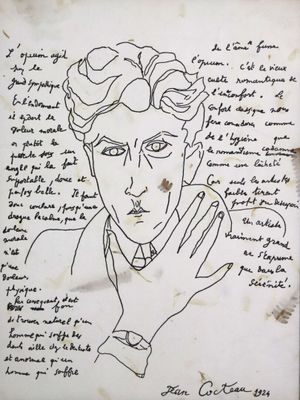 L'opium agit
sur le
grand sympathique
En l'endormant
et ajoute la
douleur morale
ou plutôt la
sous un
angle qui la fait
supportable, douce et
parfois belle. Il faut
donc conclure, puisqu'une
drogue, que la
douleur
morale
n'est
qu'une
douleur
physique.
Par conséquent, c'est
de trouver naturel qu'un
homme qui souffre des
dents aille chez le dentiste
et anormal qu'un
homme qui souffre
de l'âme fume
l'opium. C'est le vieux
culte romantique de
l'inconfort. Le
confort
fera considérer comme
de l'hygiène que
le romantisme
comme une lâcheté
Car seuls les artistes
faibles tirent
profit du
Un artiste
vraiment grand
ne s'exprime
que dans la
sérénité.
Jean Cocteau 1924